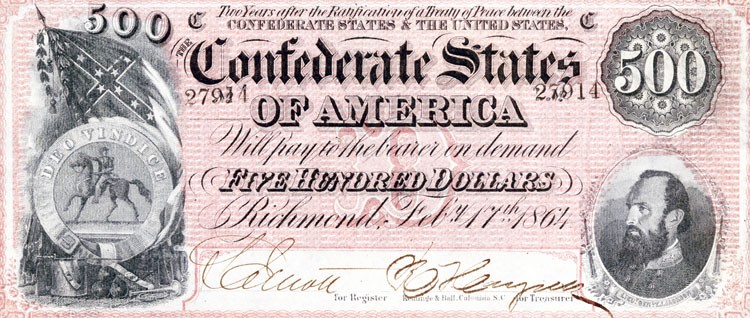 500 C Two Years after the Ratification of a Treaty of Peace between the C
CONFEDERATE STATES & THE UNITED STATES,
THE
Confederate States
500
27914 27914
OF AMERICA
DEO VINDICE
Will pay to the bearer on demand
FIVE HUNDRED DOLLARS
Richmond, Feby. 17th. 1864
for Register Keatinge & Ball, Columbia S.C. for Treasurer